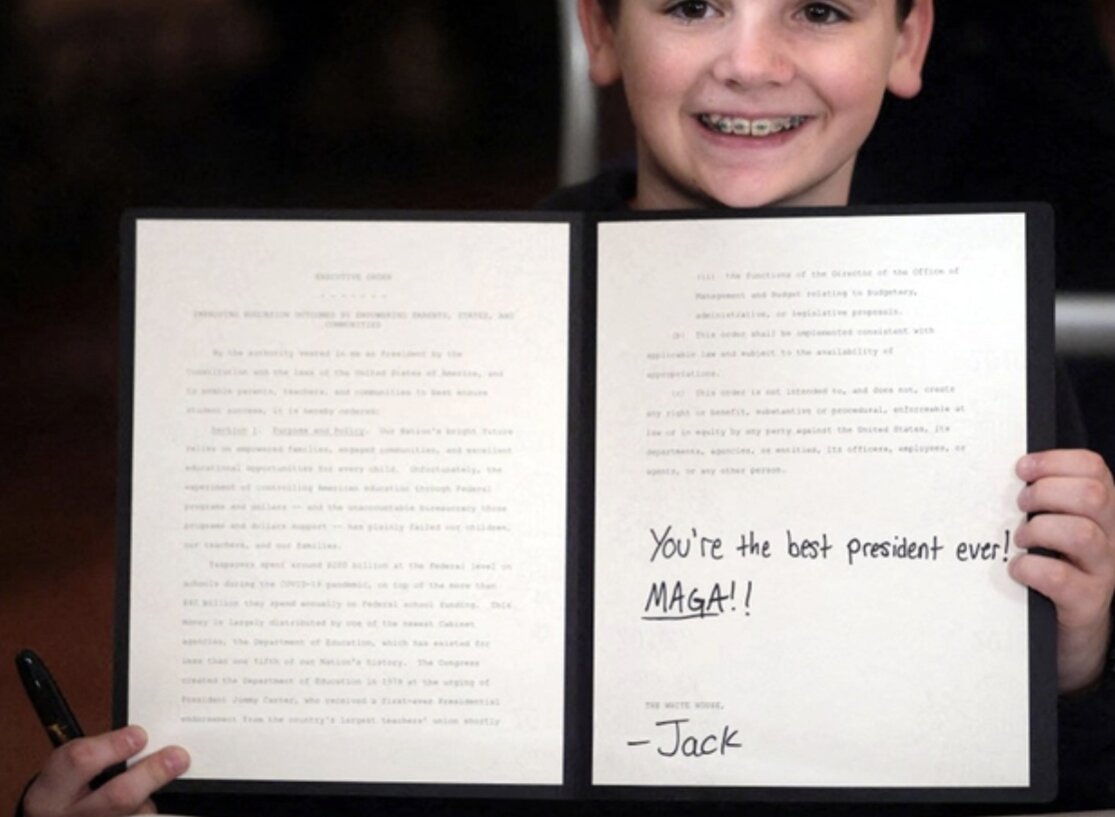 EXECUTIVE ORDER
- - - - - - -
IMPROVING EDUCATION OUTCOMES BY EMPOWERING PARENTS, STATES, AND
COMMUNITIES
By the authority vested in me as President by the
Constitution and the laws of the United States of America, and
to enable parents, teachers, and communities to best ensure
student success, it is hereby ordered:
Section 1. Purpose and Policy. Our Nation's bright future
relies on empowered families, engaged communities, and excellent
educational opportunities for every child. Unfortunately, the
experiment of controlling American education through Federal
programs and dollars -- and the unaccountable bureaucracy those
programs and dollars support -- has plainly failed our children,
our teachers, and our families.
Taxpayers spent around $200 billion at the Federal level on
schools during the COVID-19 pandemic, on top of the more than
$60 billion they spend annually on Federal school funding. This
money is largely distributed by one of the newest Cabinet
agencies, the Department of Education, which has existed for
less than one fifth of our Nation's history. The Congress
created the Department of Education in 1979 at the urging of
President Jimmy Carter, who received a first-ever Presidential
endorsement from the country's largest teachers' union shortly
(ii) the functions of the Director of the Office of
Management and Budget relating to budgetary,
administrative, or legislative proposals.
(b) This order shall be implemented consistent with
applicable law and subject to the availability of
appropriations.
(c) This order is not intended to, and does not, create
any right or benefit, substantive or procedural, enforceable at
law or in equity by any party against the United States, its
departments, agencies, or entities, its officers, employees, or
agents, or any other person.
You're the best president ever!
MAGA!!
THE WHITE HOUSE,
– Jack